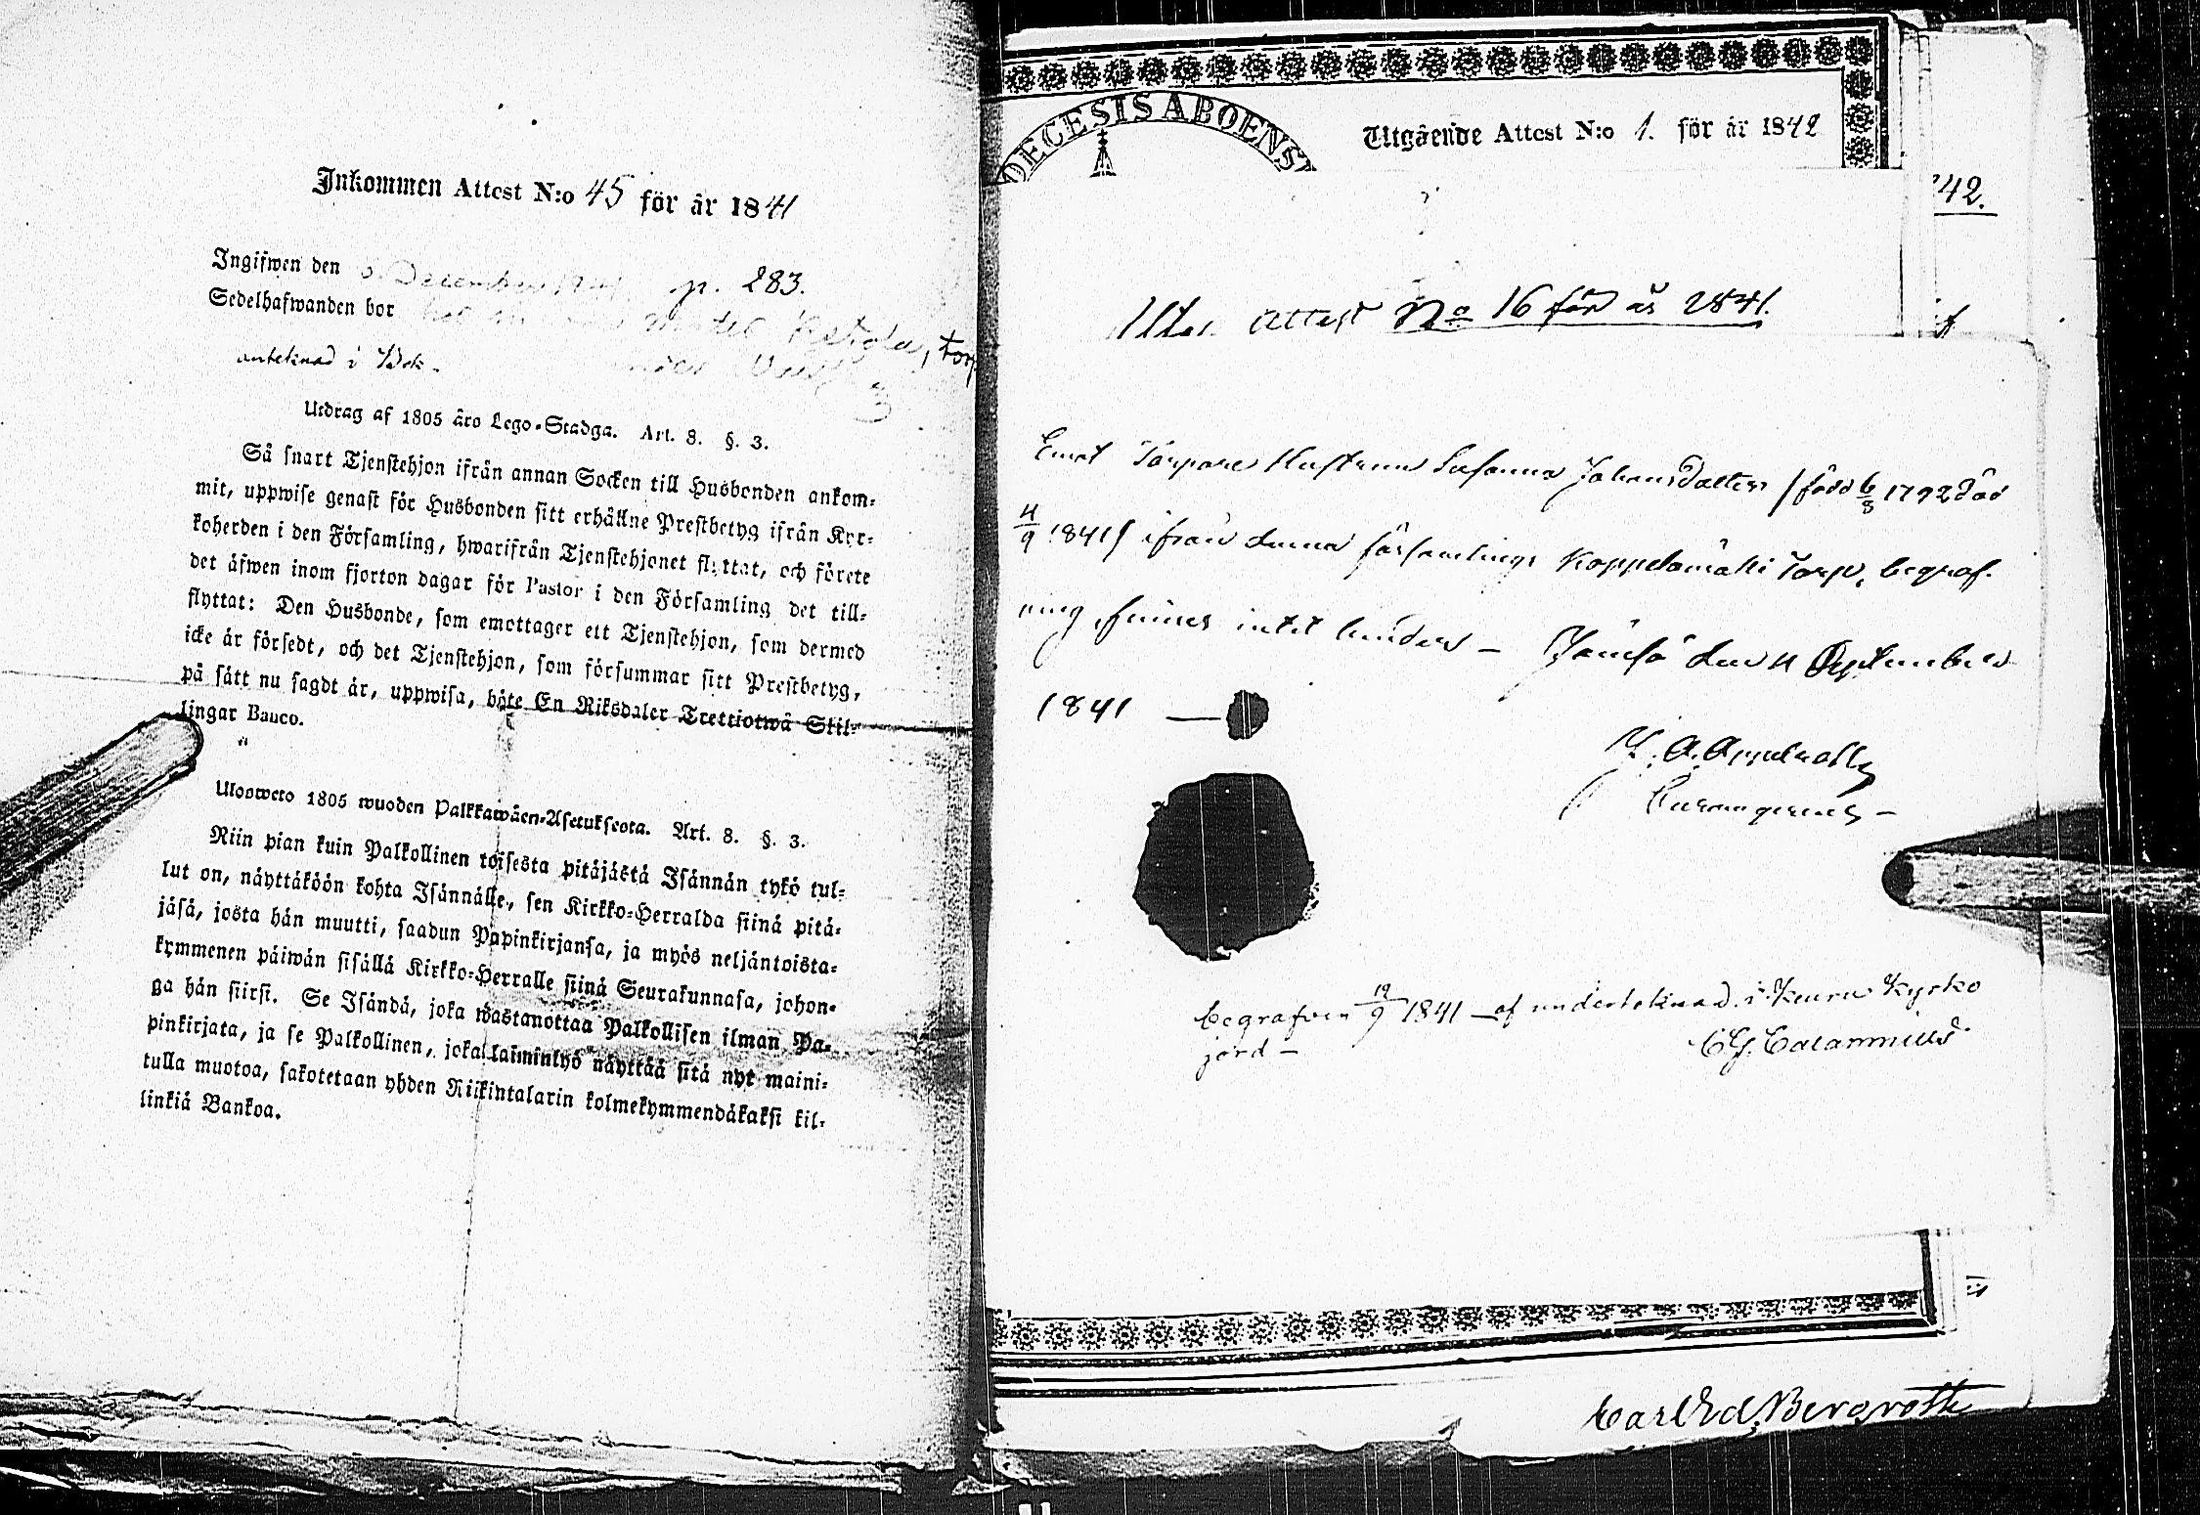 Inkommen Attest N:o 45 för år 1841
Ingifwen den December p. 283.
Sedelhafwanden bor
torp
anteknad i Bok.
Utdrag af 1805 åro Lego-Stadga. Art. 8. §. 3.
Så snart Tjenstehjon ifrån annan Socken till Husbonden ankom-
mit, uppwise genast för Husbonden sitt erhållne Prestbetyg ifrån Kyr-
koherden i den Församling, hwarifrån Tjenstehjonet flyttat, och förete
det åfwen inom fjorton dagar för Pastor i den Församling det till-
flyttat: Den Husbonde, som emottager ett Tjenstehjon, som dermed
icke år försedt, och det Tjenstehjon, som försummar sitt Prestbetyg,
på sått nu sagdt år, uppwisa, böte En Riksdaler Trettiotwå Skil-
lingar Banco.
Ulosweto 1805 wuoden Palkkawåen-Asetuksesta. Art. 8. §. 3.
Niin pian kuin Palkollinen toisesta pitåjåstå Isånnån tykö tul-
lut on, nåyttåköön kohta Isånnålle, sen Kirkko-Herralda siinå pitå-
jåså, josta hån muutti, saadun Papinkirjansa, ja myös neljåntoista-
kymmenen påiwån sisållå Kirkko-Herralle siinå Seurakunnasa, johon-
ga hån siirsi. Se Isåndå, joka wastanottaa Palkollisen ilman Pa-
pinkirjata, ja se Palkollinen, joka laiminlyö nåyttåå sitå nyt maini-
tulla muotoa, sakotetaan yhden Riikintalarin kolmekymmendåkaksi kil-
linkiå Bankoa.
DECESIS ABOENS
Utgående Attest N:o 1. för år 1842
42.
Attest No 16 för år 1841.
Emot Torpare Hustrun Susanna Johansdotter /född 6/8 1792 död
4/9 1841/ ifrån denna församlings Koppelomäki Torp, begraf-
ning finnes intet hinder – Jämsä den 11 September
1841 —
begrafven 19/9 1841 – af undertecknad i Keuru Kyrko
jord –
CG. Calamnius
Carl Ed. Bergroth